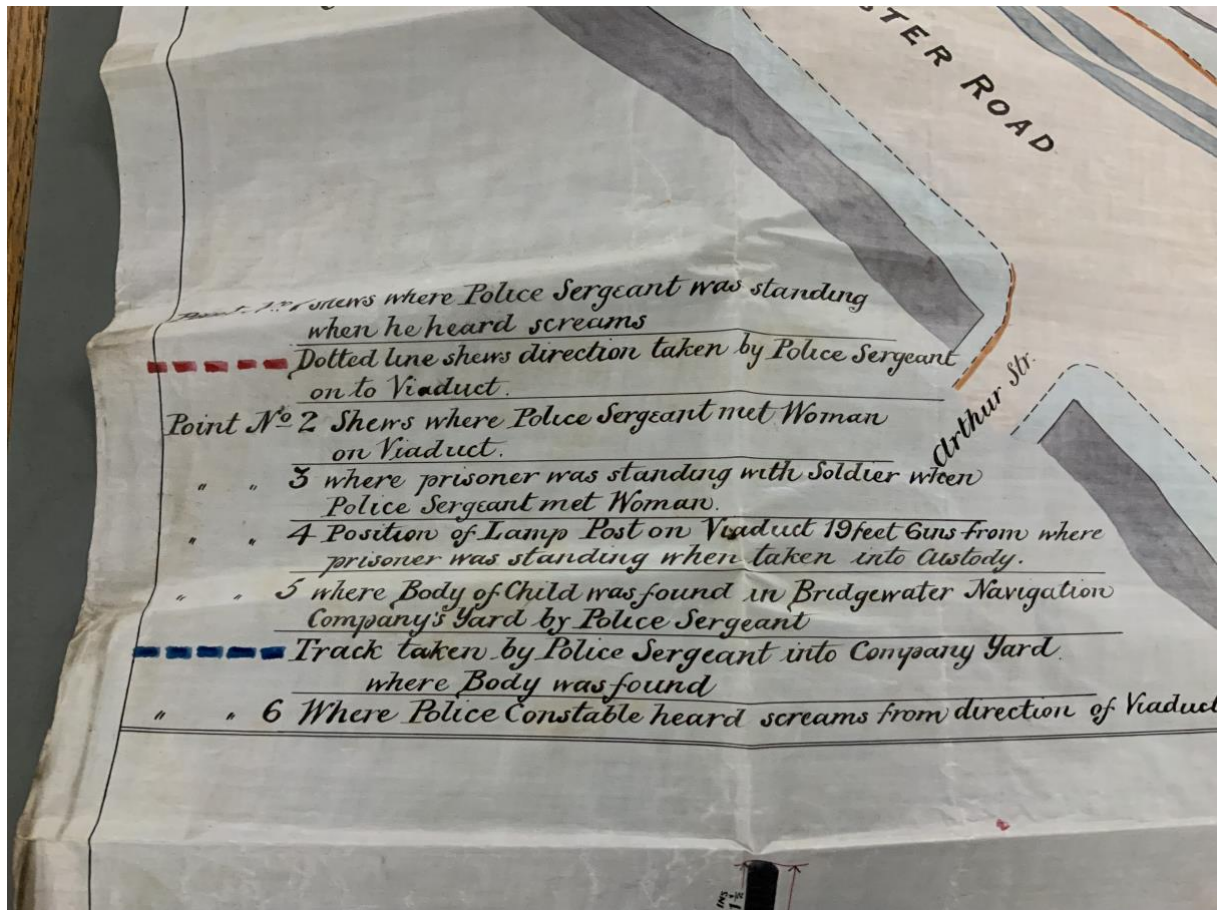 STER ROAD
shews where Police Sergeant was standing
when he heard screams
Dotted line shews direction taken by Police Sergeant
on to Viaduct.
Arthur Str.
Point No 2 Shews where Police Sergeant met Woman
on Viaduct.
" " 3 where prisoner was standing with Soldier when
Police Sergeant met Woman.
" " 4 Position of Lamp Post on Viaduct 19 feet 6 ins from where
prisoner was standing when taken into Custody.
" " 5 where Body of Child was found in Bridgewater Navigation
Company's Yard by Police Sergeant
Track taken by Police Sergeant into Company Yard.
where Body was found
" " 6 Where Police Constable heard screams from direction of Viaduct
INS